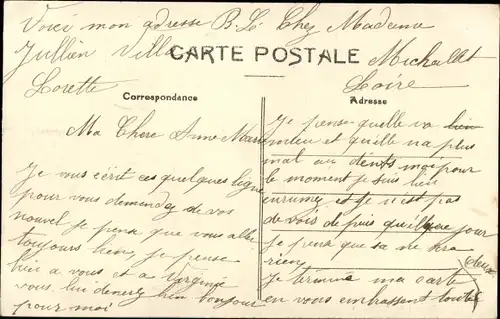 Voici mon adresse B. L. Chez Madame
Jullien Villa Michallet
Lorette Loire
CARTE POSTALE
Correspondance
Ma Chere Anne Marie
Je vous écrit ces quelques ligne
pour vous demandez de vos
nouvel je pense que vous alle
toujours bien, je pense
bien a vous et a Virginie
vous lui donerez bien bonjour
pour moi
Adresse
Je pense quelle va bien
mieu et quelle na plus
mal au dents moi pour
le moment je suis bien
enrumé et je n'est pas
de vois de puis quelque jour
je pense que sa ne sera
rien,
je termine ma carte
en vous embrassant toute
deux